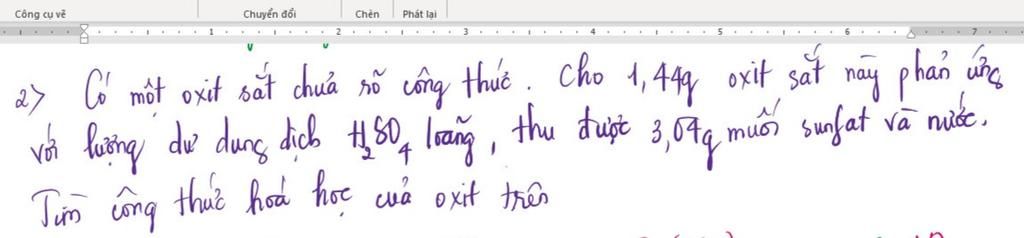 Công cụ vẽ Chuyển đổi Chèn Phát lại
1 2 3 4 5 6 7
2> Có một oxit sắt chưa rõ công thức. Cho 1,44g oxit sắt này phản ứng
với lượng dư dung dịch H₂SO₄ loãng, thu được 3,04g muối sunfat và nước.
Tìm công thức hoá học của oxit trên